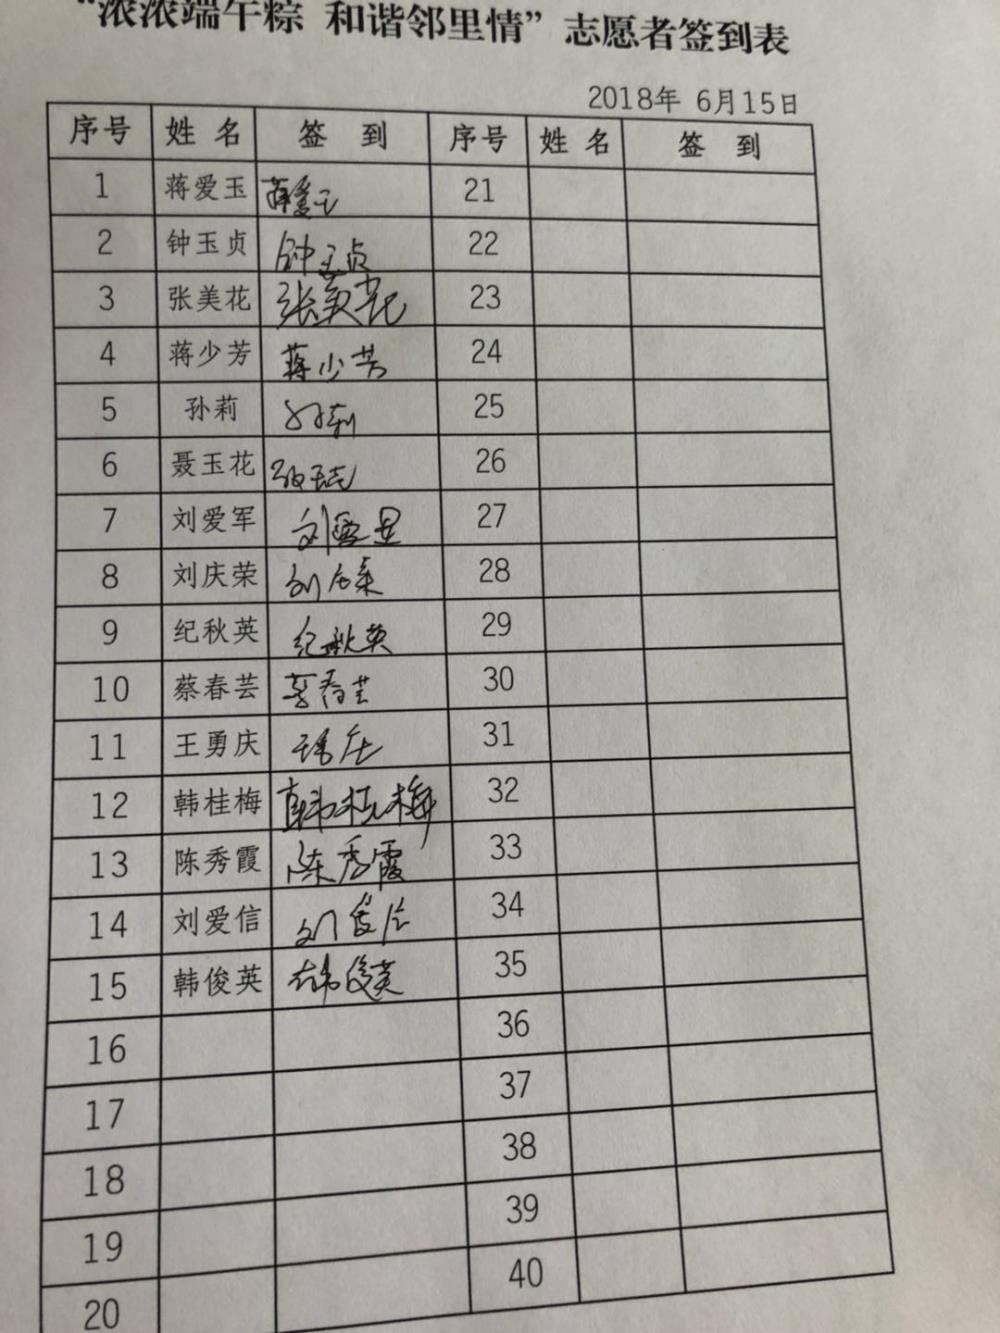 “浓浓端午粽 和谐邻里情”志愿者签到表
2018年 6月15日
序号 姓 名 签 到 序号 姓 名 签 到
1 蒋爱玉 蒋爱玉 21
2 钟玉贞 钟玉贞 22
3 张美花 张美花 23
4 蒋少芳 蒋少芳 24
5 孙莉 孙莉 25
6 聂玉花 26
7 刘爱军 27
8 刘庆荣 刘庆荣 28
9 纪秋英 纪秋英 29
10 蔡春芸 蔡春芸 30
11 王勇庆 王勇庆 31
12 韩桂梅 韩桂梅 32
13 陈秀霞 陈秀霞 33
14 刘爱信 刘爱信 34
15 韩俊英 韩俊英 35
16 36
17 37
18 38
19 39
20 40